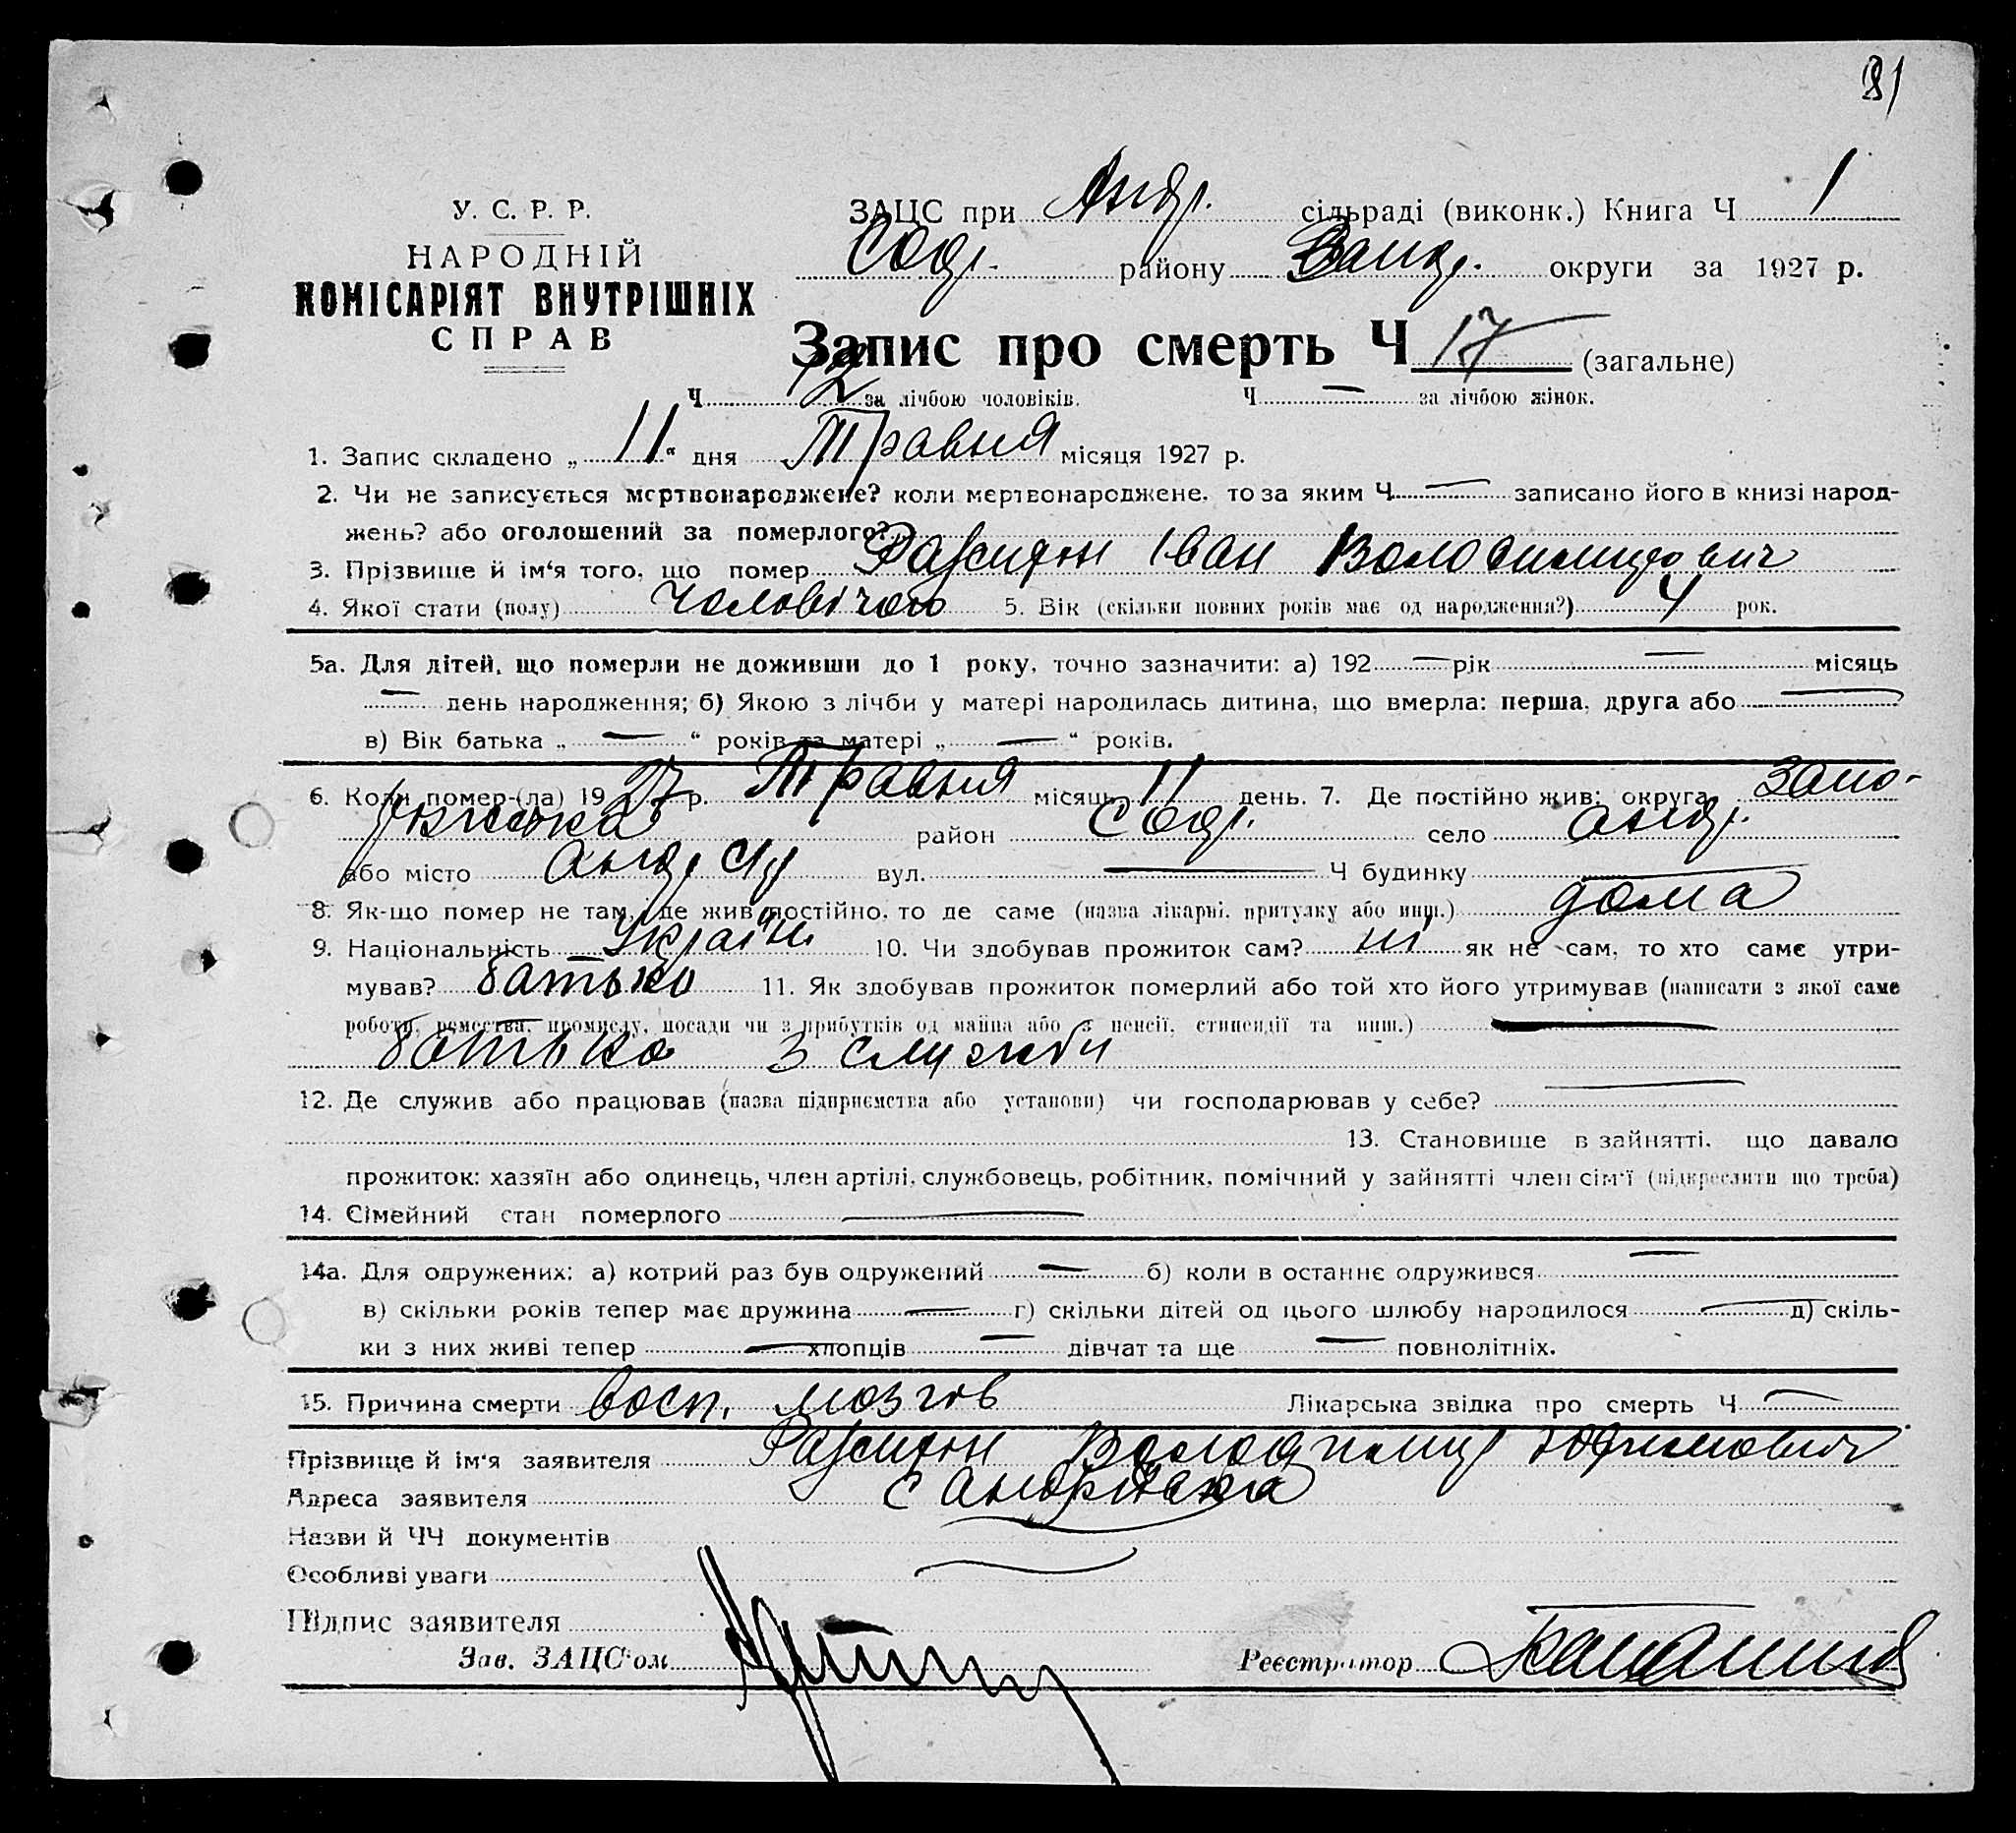 81
У. С. Р. Р.
НАРОДНІЙ
КОМІСАРІЯТ ВНУТРІШНІХ
СПРАВ
ЗАЦС при Андр. сільраді (виконк.) Книга Ч 1
району округи за 1927 р.
Запис про смерть Ч 17 (загальне)
Ч 12 за лічбою чоловіків. Ч — за лічбою жінок.
1. Запис складено „ 11 “ дня Травня місяця 1927 р.
2. Чи не записується мертвонароджене? коли мертвонароджене, то за яким Ч — записано його в книзі народ-
жень? або оголошений за померлого?
3. Прізвище й ім‘я того, що помер Іван Володимирович
4. Якої стати (полу) чоловічого 5. Вік (скільки повних років має од народження?) 4 рок.
5а. Для дітей, що померли не доживши до 1 року, точно зазначити: а) 192 — рік — місяць
— день народження; б) Якою з лічби у матері народилась дитина, що вмерла: перша, друга або —
в) Вік батька „ — “ років та матері „ — “ років.
6. Коли помер-(ла) 19 27 р. Травня місяць 11 день. 7. Де постійно жив: округа Запо-
ріжська район село Андр.
або місто вул. — Ч будинку —
8. Як-що помер не там, де жив постійно, то де саме (назва лікарні, притулку або инш.) дома
9. Національність Україн 10. Чи здобував прожиток сам? ні як не сам, то хто саме утри-
мував? батько 11. Як здобував прожиток померлий або той хто його утримував (написати з якої саме
роботи, ремества, промислу, посади чи з прибутків од майна або з пенсії, стипендії та инш.) —
батько з служби
12. Де служив або працював (назва підприємства або установи) чи господарював у себе? —
13. Становище в зайнятті, що давало
прожиток: хазяїн або одинець, член артілі, службовець, робітник, помічний у зайнятті член сім‘ї (підкреслити що треба)
14. Сімейний стан померлого —
14а. Для одружених: а) котрий раз був одружений — б) коли в останнє одружився —
в) скільки років тепер має дружина — г) скільки дітей од цього шлюбу народилося — д) скіль-
ки з них живі тепер — хлопців — дівчат та ще — повнолітніх.
15. Причина смерти восп. мозгов Лікарська звідка про смерть Ч —
Прізвище й ім‘я заявителя Володимир Юхимович
Адреса заявителя с Андріївка
Назви й ЧЧ документів
Особливі уваги
Підпис заявителя
Зав. ЗАЦС‘ом Реєстратор